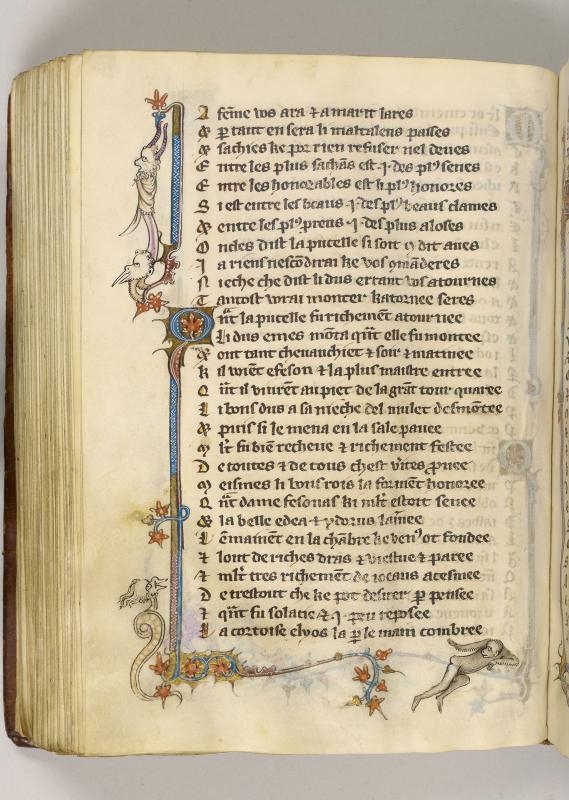 A feme vos ara ⁊ a marit lares
⁊ p̲ tant en sera li maltalens passes
⁊ sachies ke por rien refuser nel deues
E ntre les plus sachās est ·i· des plꝰ senes
E ntre les honorables est li plꝰ honores
S i est entre les beaus ·i· des plꝰ beaus clames
⁊ entre les plꝰ preus ·i· des plus aloses
O ncles dist la pucelle si soit ꝯ dit aues
I a riens nescōdirai ke vos ꝯmāderes
N ieche che dist li dus errant vos atournes
T antost vorai monter katornee seres
Q ūt la pucelle fu richemēt atournee
L i dus emes mōta qūt elle fu montee
⁊ ont tant cheuauchiet ⁊ soir ⁊ matinee
K il viēt efeson ⁊ la plus maistre entree
Q ūt il vinrēt au piet de la grāt tour quaree
L i bons dus a sa nieche del mulet desmōtee
⁊ puis si le mena en la sale pauee
M lt fu biē recheue ⁊ richement festee
D e toutes ⁊ de tous chest v̾ites ꝓuee
M eismes li bons rois la formēt honoree
Q ūt dame fesonas ki mlt estoit senee
⁊ la belle edea ⁊ ydorus lainee
L ēmainēt en la chābre ke venꝰ ot fondee
⁊ lont de riches dras ⁊ viestue ⁊ paree
⁊ mlt tres richemēt de ioeaus acesmee
D e trestout che ke pot desirer p̲ pensee
⁊ qūt fu solacie ⁊ ·i· peu reposee
L a cortoise elyos la p̲ le main combree